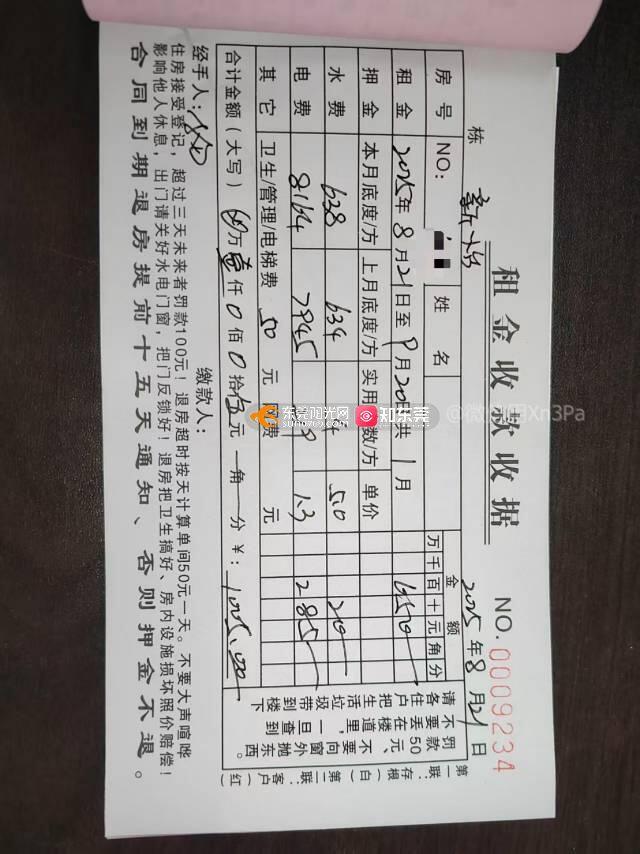 租金收款收据
NO. 0009234
栋 2025年8月21日
房号 NO: 姓名 金额
万千百十元角分
租金 2025年8月21日至9月20日共1月 650
押金 本月底度/方 上月底度/方 实用 数/方 单价
水费 638 634 5.0 20
电费 8164 7945 1.3 285
其它 卫生/管理/电梯费 50 元 费 元
合计金额(大写) 万壹仟0佰0拾伍元 角 分 ¥: 1005.00
经手人: 缴款人:
住房接受登记,超过三天未来者罚款100元!退房超时按天计算单间50元一天。不要大声喧哗
影响他人休息,出门请关好水电门窗,把门反锁好!退房把卫生搞好、房内设施损坏照价赔偿!
合同到期退房提前十五天通知、否则押金不退。
请各住户把生活垃圾带到楼下
不要丢在楼道里,一旦查到
罚款50元、不要向窗外抛东西。
第一联:存根(白) 第二联:客户(红)
东莞阳光网
sun0769.com
知东莞
@微信用Xn3Pa